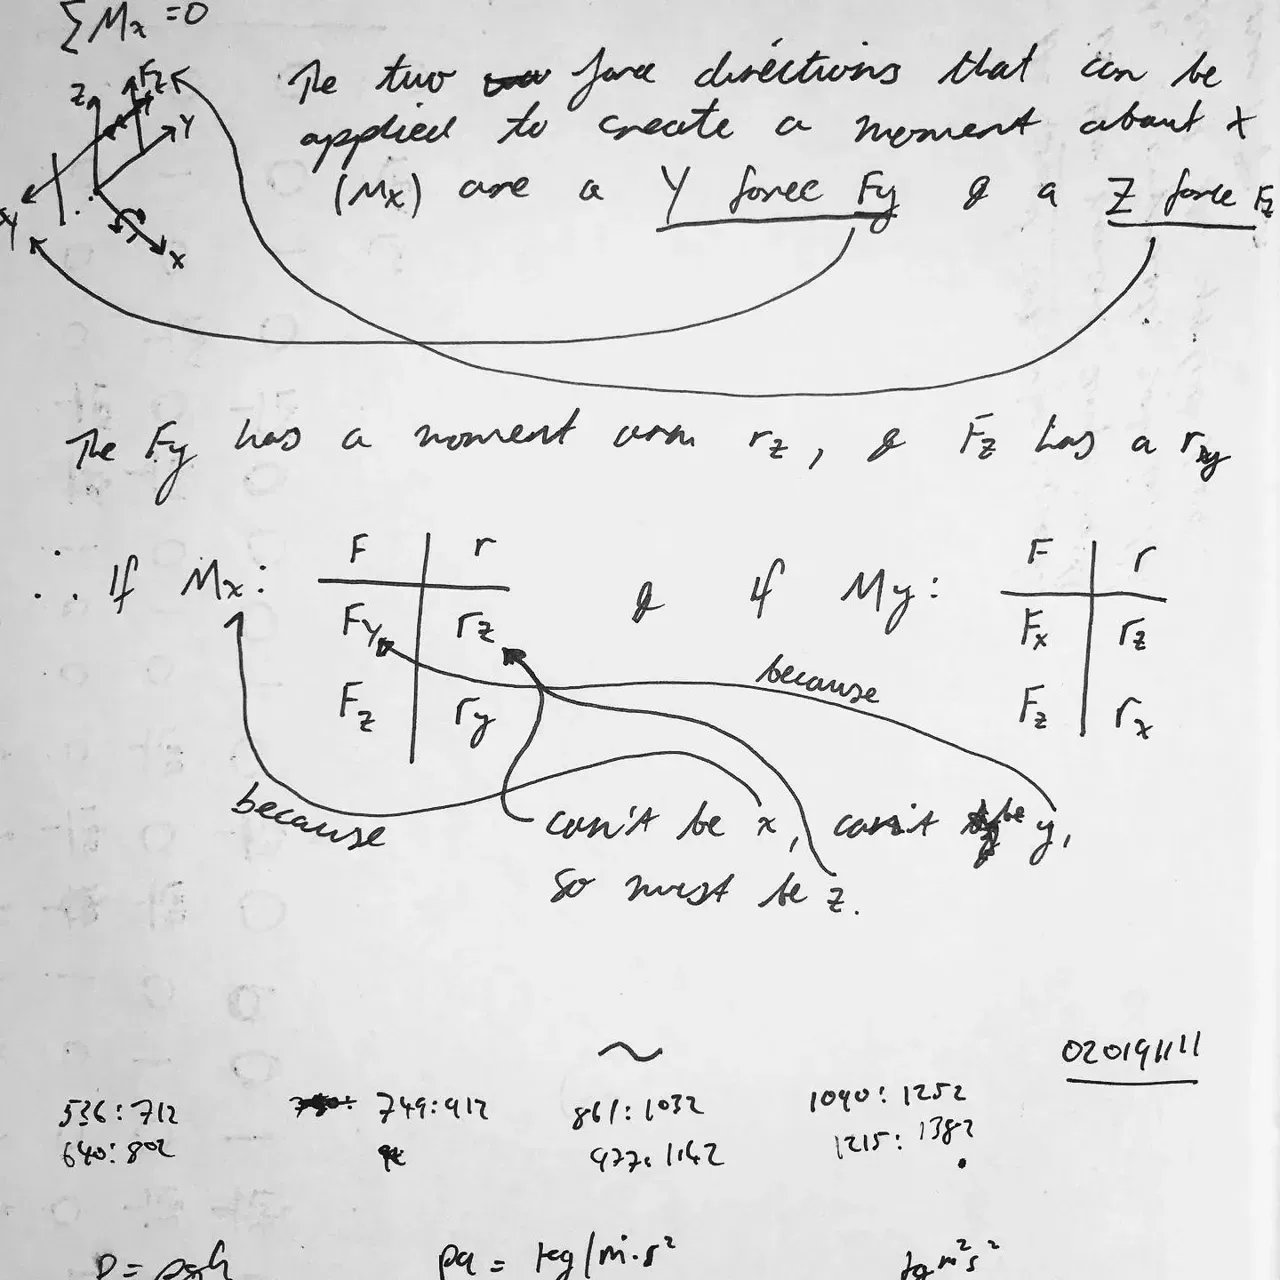 ΣMx = 0
Z Fz Y
Y X
The two force directions that can be
applied to create a moment about X
(Mx) are a Y force Fy & a Z force Fz
The Fy has a moment arm rz, & Fz has a ry
∴ If Mx: F r & if My: F r
Fy rz Fx rz
Fz ry Fz rx
because
because
can't be x, can't be y,
so must be z.
~
020191111
536:712 749:912 861:1032 1090:1252
640:802 977:1142 1215:1382
P = ρgh pa = kg/m·s² kg m² s²